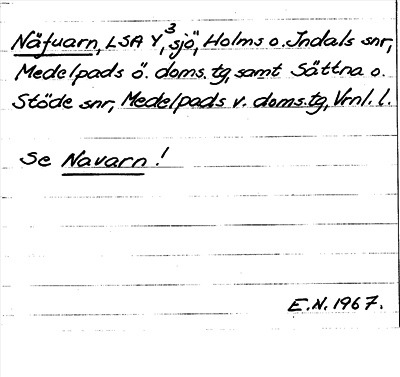 Näfuarn, LSA Y,³ "sjö", Holms o. Indals snr,
Medelpads ö. doms.tg, samt Sättna o.
Stöde snr, Medelpads v. doms.tg, Vrnl. l.
Se Navarn!
E.N. 1967.